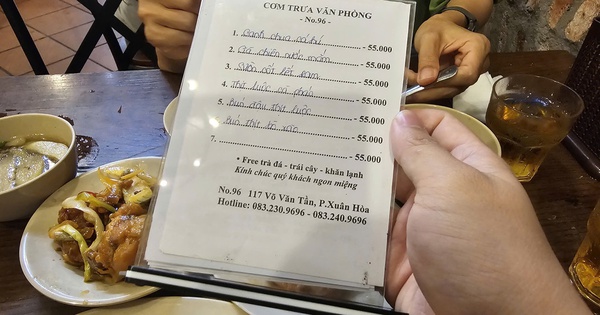 CƠM TRƯA VĂN PHÒNG
- No.96 -
1. Canh chua cá hú - 55.000
2. Gà chiên nước mắm - 55.000
3. Sườn cốt lết ram - 55.000
4. Thịt luộc cà pháo - 55.000
5. Bún đậu thịt luộc - 55.000
6. Bún thịt xào - 55.000
7. - 55.000
• Free trà đá - trái cây - khăn lạnh
Kính chúc quý khách ngon miệng
No.96 117 Võ Văn Tần, P.Xuân Hòa
Hotline: 083.230.9696 - 083.240.9696